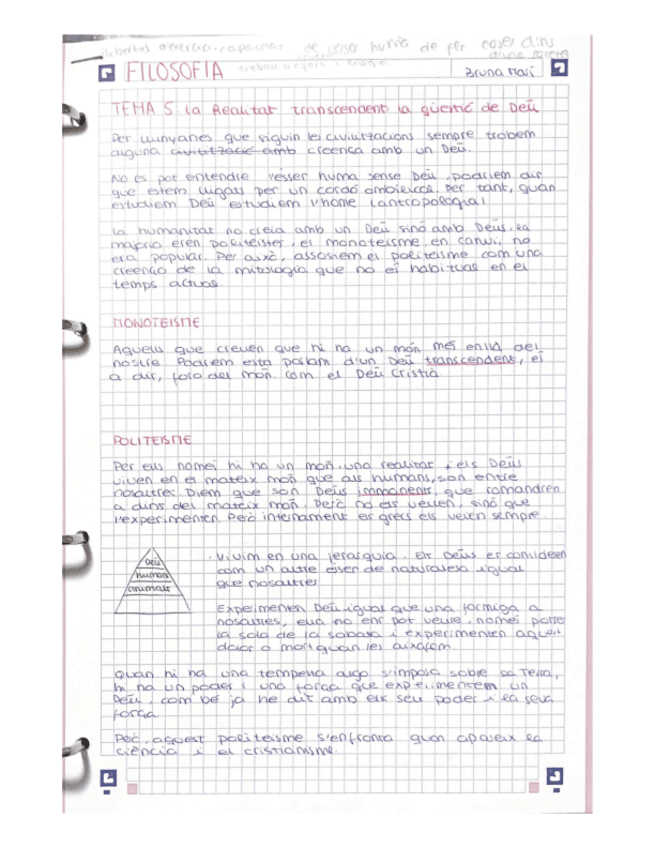 llibertat
capacitat de ésser humà de fer coses dins
FILOSOFIA
Bruna Marí
TEMA 5. La Realitat transcendent. la qüestió de Deú
Per llunyanes que siguin les civilitzacions sempre trobem
alguna civilització amb creença amb un Deú.
No es pot entendre l'ésser humà sense Deú, podriem dir
que estem lligats per un cordó ombilical. Per tant, quan
estudiem Deú estudiem l'home (antropologia)
La humanitat no creia amb un Deú sinó amb Deús, la
majoria eren politeistes, el monoteisme, en canvi, no
era popular. Per això, associem el politeisme com una
creença de la mitologia que no és habitual en el
temps actual.
MONOTEISME
Aquells que creuen que hi ha un món més enllà del
nostre. Podrem esta parlant d'un Deú transcendent, és
a dir, fora del món. Com el Deú Cristià
POLITEISME
Per ells només hi ha un món, una realitat i els Deús
viuen en el mateix món que als humans, són entre
nosaltres. Diem que són Deús immanents, que romandren
a dins del mateix món. Però no els veuen, sinó que
l'experimenten. Però internament els grecs els veien sempre.
Deú
humans
animals
· Vivim en una jerarquia. Els Deús es consideren
com un altre ésser de naturalesa igual
que nosaltres
Experimenten Deú igual que una formiga a
nosaltres, ella no ens pot veure, només
la sola de la sabata i experimenten aquell
dolor o mort quan les aixafem
Quan hi ha una tempesta algo s'imposa sobre la Terra,
hi ha un poder i una força que experimentem un
Deú, com bé ja he dit amb els seu poder i la seva
força.
Però, aquest politeisme s'enfronta quan apareix la
ciència i el cristianisme.